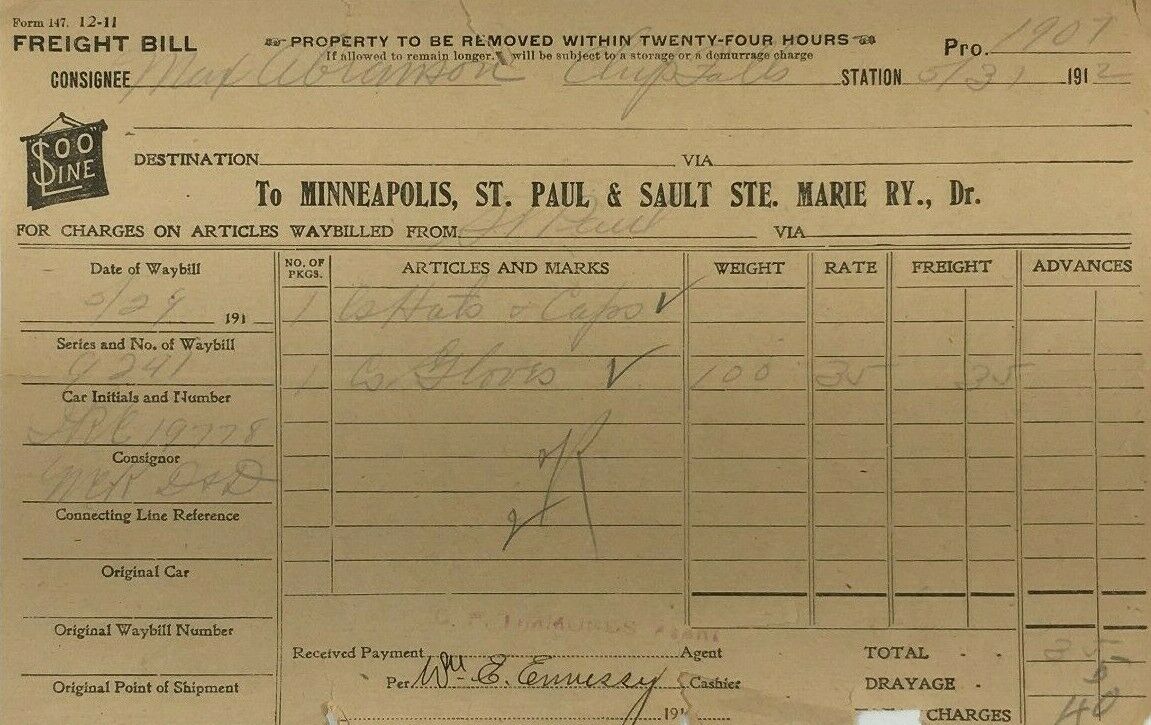 Form 147. 12-11
FREIGHT BILL
PROPERTY TO BE REMOVED WITHIN TWENTY-FOUR HOURS
If allowed to remain longer, will be subject to a storage or a demurrage charge
Pro. 1907
CONSIGNEE Max Abramson Chip Falls STATION 5/31 1912
SOO LINE
DESTINATION VIA
To MINNEAPOLIS, ST. PAUL & SAULT STE. MARIE RY., Dr.
FOR CHARGES ON ARTICLES WAYBILLED FROM St Paul VIA
Date of Waybill NO. OF PKGS. ARTICLES AND MARKS WEIGHT RATE FREIGHT ADVANCES
5/29 191 1 Cs Hats & Caps ✓
Series and No. of Waybill
9241 1 Cs Gloves ✓ 100 35 35
Car Initials and Number
19778
Consignor
Connecting Line Reference
Original Car
Original Waybill Number
Received Payment Agent TOTAL - - 35
Original Point of Shipment Per Wm E. Ennessy Cashier DRAYAGE -
191 CHARGES 40